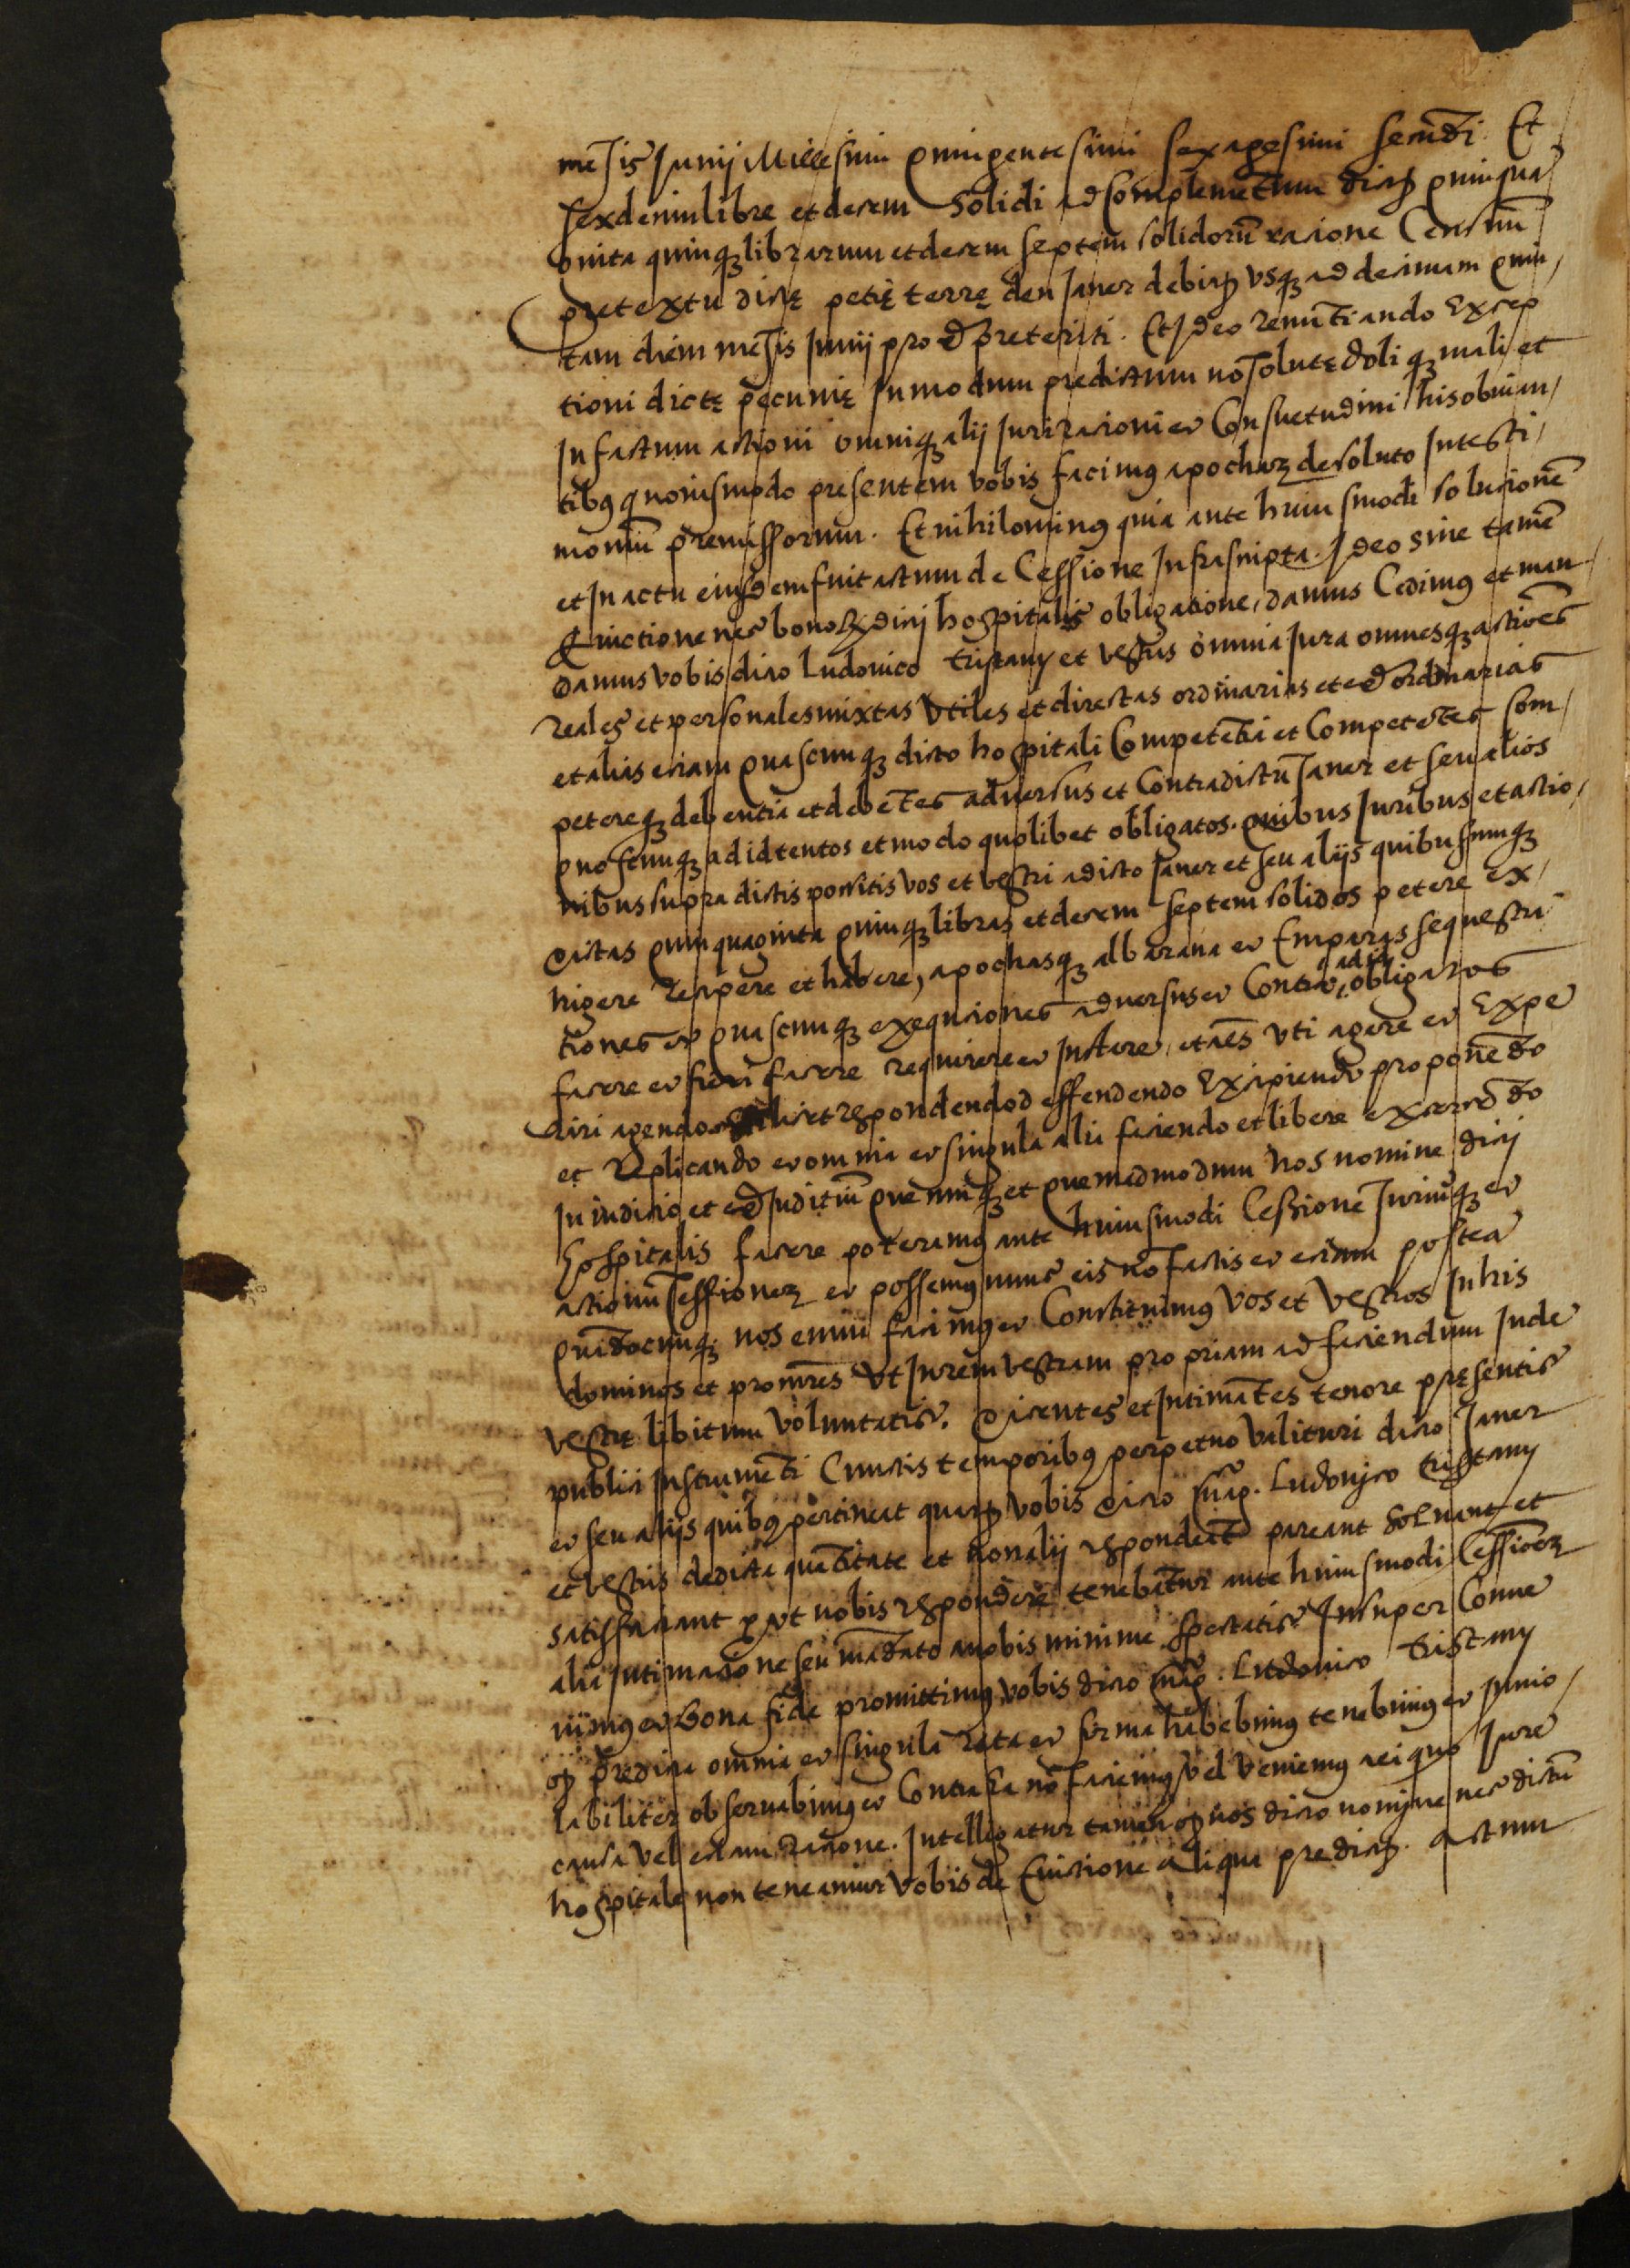 mēsis Junij Millesimi quingentesimi sexagesimi secūdi. Et
sexdecim libre et decem solidi ad complemētum dictaꝝ quinqua
ginta quinqꝫ librarum et decem septem solidorū racione Censuū
pretextu dictę petię terrę den Janer debitaꝝ vsqꝫ ad decimam quin
tam diem mēsis Junij proxͦ preteriti. Et Jdeo renūtiando Excep
tioni dictę pecunię Jn modum predictum nō solutę doliqꝫ mali et
Jn factum actioni omniqꝫ alij Juri racioni et Consuetudini his obuian
tibꝰ quouismodo presentem vobis facimꝰ apochaꝫ de soluto Jn testi
moniū premissorum. Et nihilominꝰ quia ante huiusmodi solucionē
et Jn actu eiusdem fuit actum de Cessione Jnfrascripta. Jdeo sine tamē
Euictione nec bonoꝝ dicti hospitalis obligatione, damus Cedimꝰ et man
damus vobis dicto Ludouico tristany et vestris omnia Jura omnesqꝫ actiōes
reales et personales mixtas vtiles et directas ordinarias et exͣordinarias
et alias eciam quascunqꝫ dicto hospitali Competētia et Competētes Com
petereqꝫ debentia et debētes aduersus et Contra dictū Janer et seu alios
quoscunqꝫ ad id tentos et modo quolibet obligatos. quibus Juribus et actio
nibus supradictis possitis vos et vestri a dicto Janer et seu alijs quibuscunqꝫ
dictas quinquaginta quinqꝫ libras et decem septem solidos petere ex
higere recipere et habere, apochasqꝫ albarana et Emparas sequestra
tiones et quascunqꝫ exequciones aduersus et Contra ad id obligatos
facere et fieri facere requirere et Jnstare, et als̄ vti agere et Expe
riri agendo et respondendo deffendendo Excipiendo proponēdo
et Replicando et omnia et singula alia faciendo et libere exercēdo
Jn iudicio et exͣ Juditiū quecunqꝫ et quemadmodum Nos nomine dicti
hospitalis facere poteramꝰ ante huiusmodi Cessionē Juriūqꝫ et
actionū Cessionem et possemꝰ nunc eis nō factis et eciam postea
quādocunqꝫ nos enim facimꝰ et Constituimꝰ vos et vestros Jn his
dominos et procͬes vt Jn rem vestram propriam ad faciendum Jnde
vestrę libitum voluntatis. Dicentes et Jntimātes tenore pręsentis
publici Jnstrumēti Cunctis temporibꝰ perpetuo valituri dicto Janer
et seu alijs quibꝰ pertineat quatꝰ vobis dicto mͨo. Ludouico tristany
et vestris de dicta quātitate et non alij respondeāt pareant soluant et
satisfaciant ꝓut nobis respondere tenebātur ante huiusmodi Cessionem
alia Jntimacione seu mādato a nobis minime spectatis Jnsuper Conue
nimꝰ et bona fide promittimꝰ vobis dicto mͨo. Ludouico tristany
qꝫ predicta omnia et singula rata et firma habebimꝰ tenebimꝰ et Jnuio
labiliter obseruabimꝰ et Contra ea nō faciemꝰ vel veniemꝰ aliquo Jure
causa vel eciam racione. Jntelligatur tamen qꝫ nos dicto nomine nec dictū
hospitale non teneamur vobis de Euictione aliqua predictaꝝ. Actum